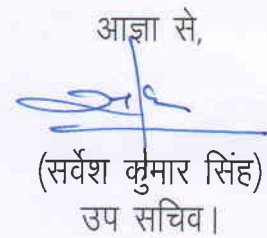 आज्ञा से,
(सर्वेश कुमार सिंह)
उप सचिव।